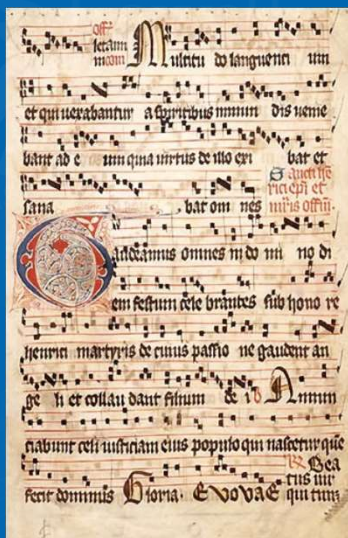 Multitu do languenti um
et qui vexabantur a spiritibus inmun dis venie
bant ad e um quia virtus de illo exi bat et
sana bat om nes
Gaudeamus omnes in do mi no di
em festum cele brantes sub hono re
henrici martyris de cuius passio ne gaudent an
ge li et collau dant filium de i Annun
ciabunt celi iusticiam eius populo qui nascetur que
fecit dominus Gloria. EVOVAE
Bea
tus vir
qui tim